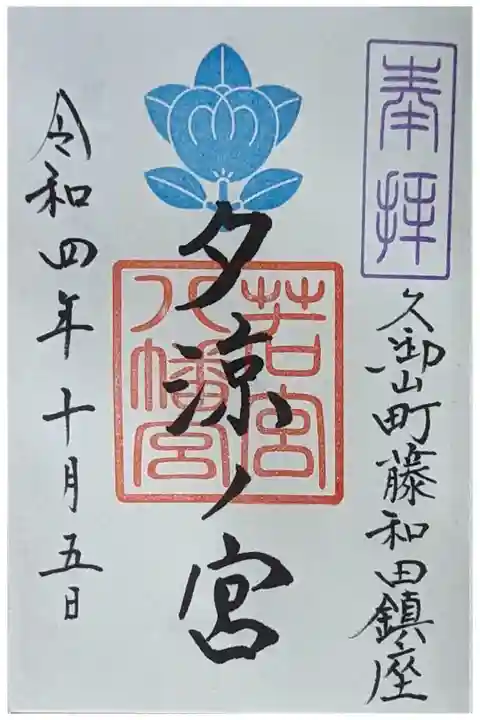 奉拝
久御山町藤和田鎮座
夕涼ノ宮
若宮
八幡宮
令和四年十月五日